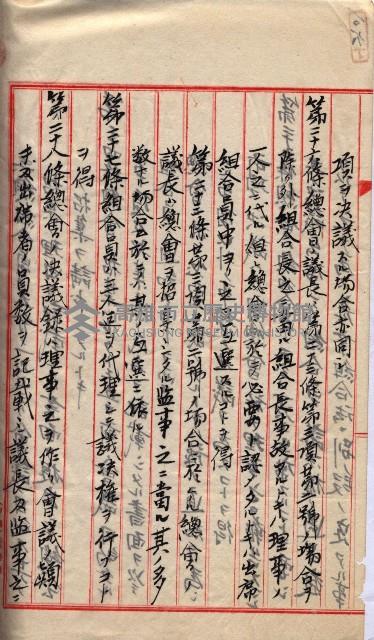 項ヲ決議スル場合亦同シ
第二十六條總會ノ議長ハ第二十三條第三項第二號ノ場合ヲ
除ク外組合長之ニ當ル組合長事故アルトキハ理事ノ
一人之ニ代ル但總會ニ於テ必要ト認メタルトキハ出席
組合員中ヨリ之ヲ互選スルコトヲ得
第二十三條第三項第二號ノ場合ニ於ケル總會ノ
議長ハ總會ヲ招集シタル監事之ニ當ル其ノ多
數ナル場合ニ於テハ其ノ互選ニ依ル
第二十七條組合員ハ代理ニテ議決權ヲ行フコト
ヲ得
第二十八條總會ノ決議錄ハ理事之ヲ作リ會議ノ顚
末及出席者ノ員數ヲ記載シ議長及監事之ニ
高雄市立歷史博物館
KAOHSIUNG MUSEUM OF HISTORY